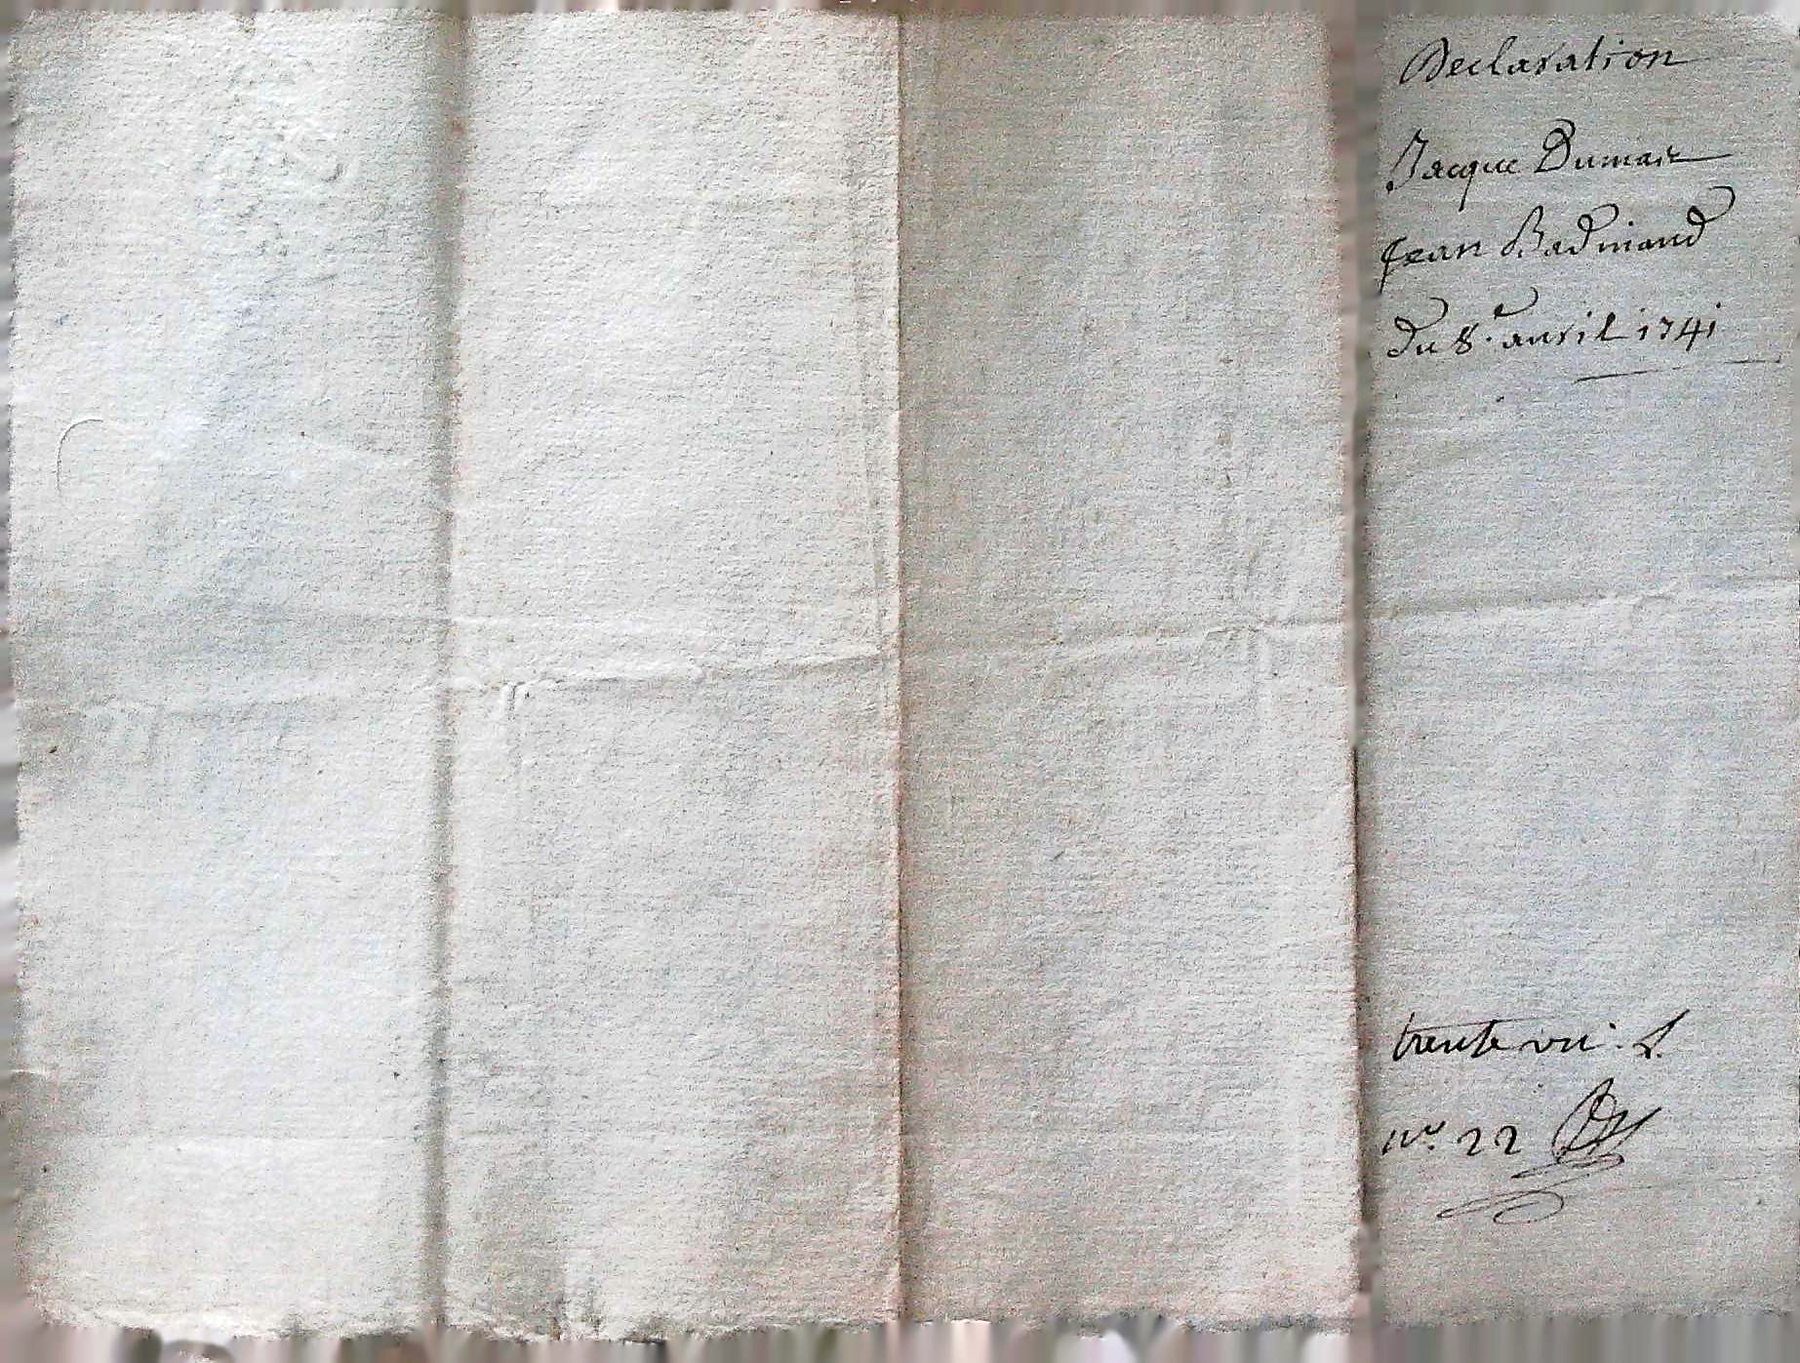 Declaration
Jacque Dumais
Jean Badinand
du 8.e auril 1741
trente vn: L.
n.o 22